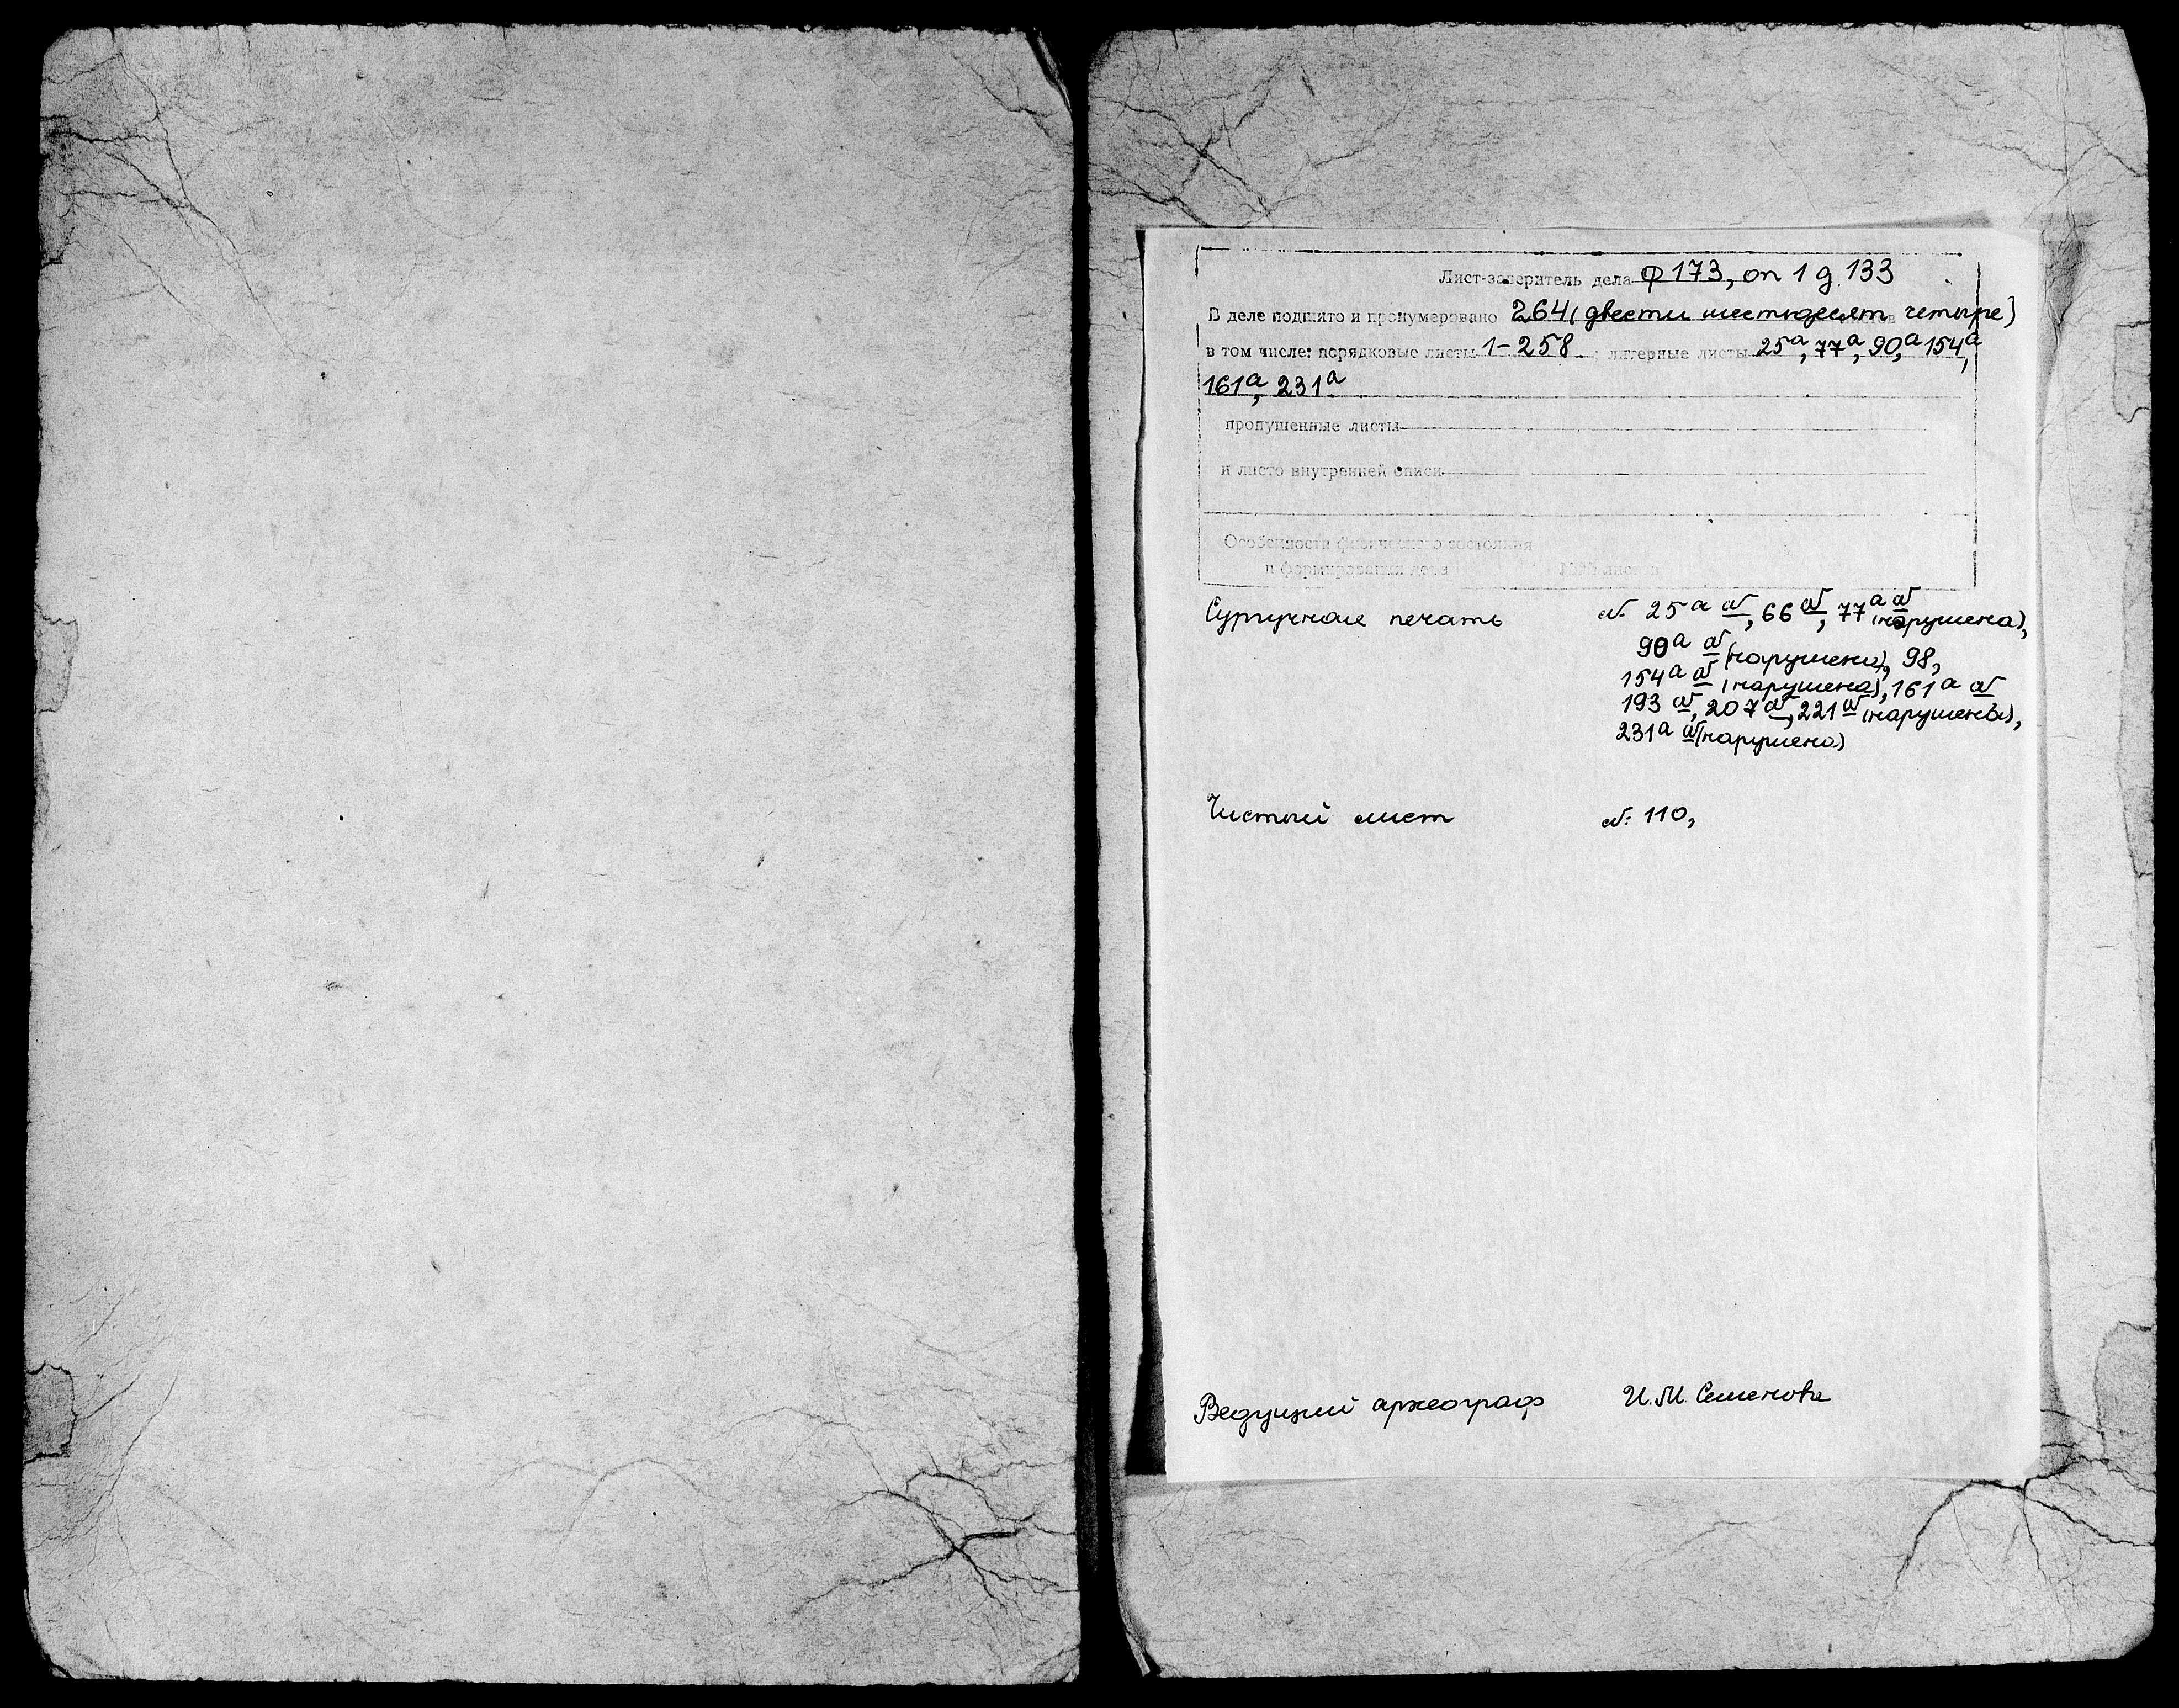 Лист-заверитель дела ф 173, оп 1 д. 133
В деле подшито и пронумеровано 264 (двести шестьдесят четыре)
в том числе: порядковые листы 1-258 ; литерные листы 25а, 77а, 90а, 154а,
161а, 231а
пропущенные листы
и листо внутренней описи
Особенности физического состояния
и формирования дела
Сургучная печать л. 25а об, 66 об, 77а об (нарушена),
90а об (нарушена), 98,
154а об (нарушена), 161а об
193 об, 207 об, 221 об (нарушены),
231а об (нарушена)
Чистый лист л: 110,
Ведущий археограф И.М. Семенова